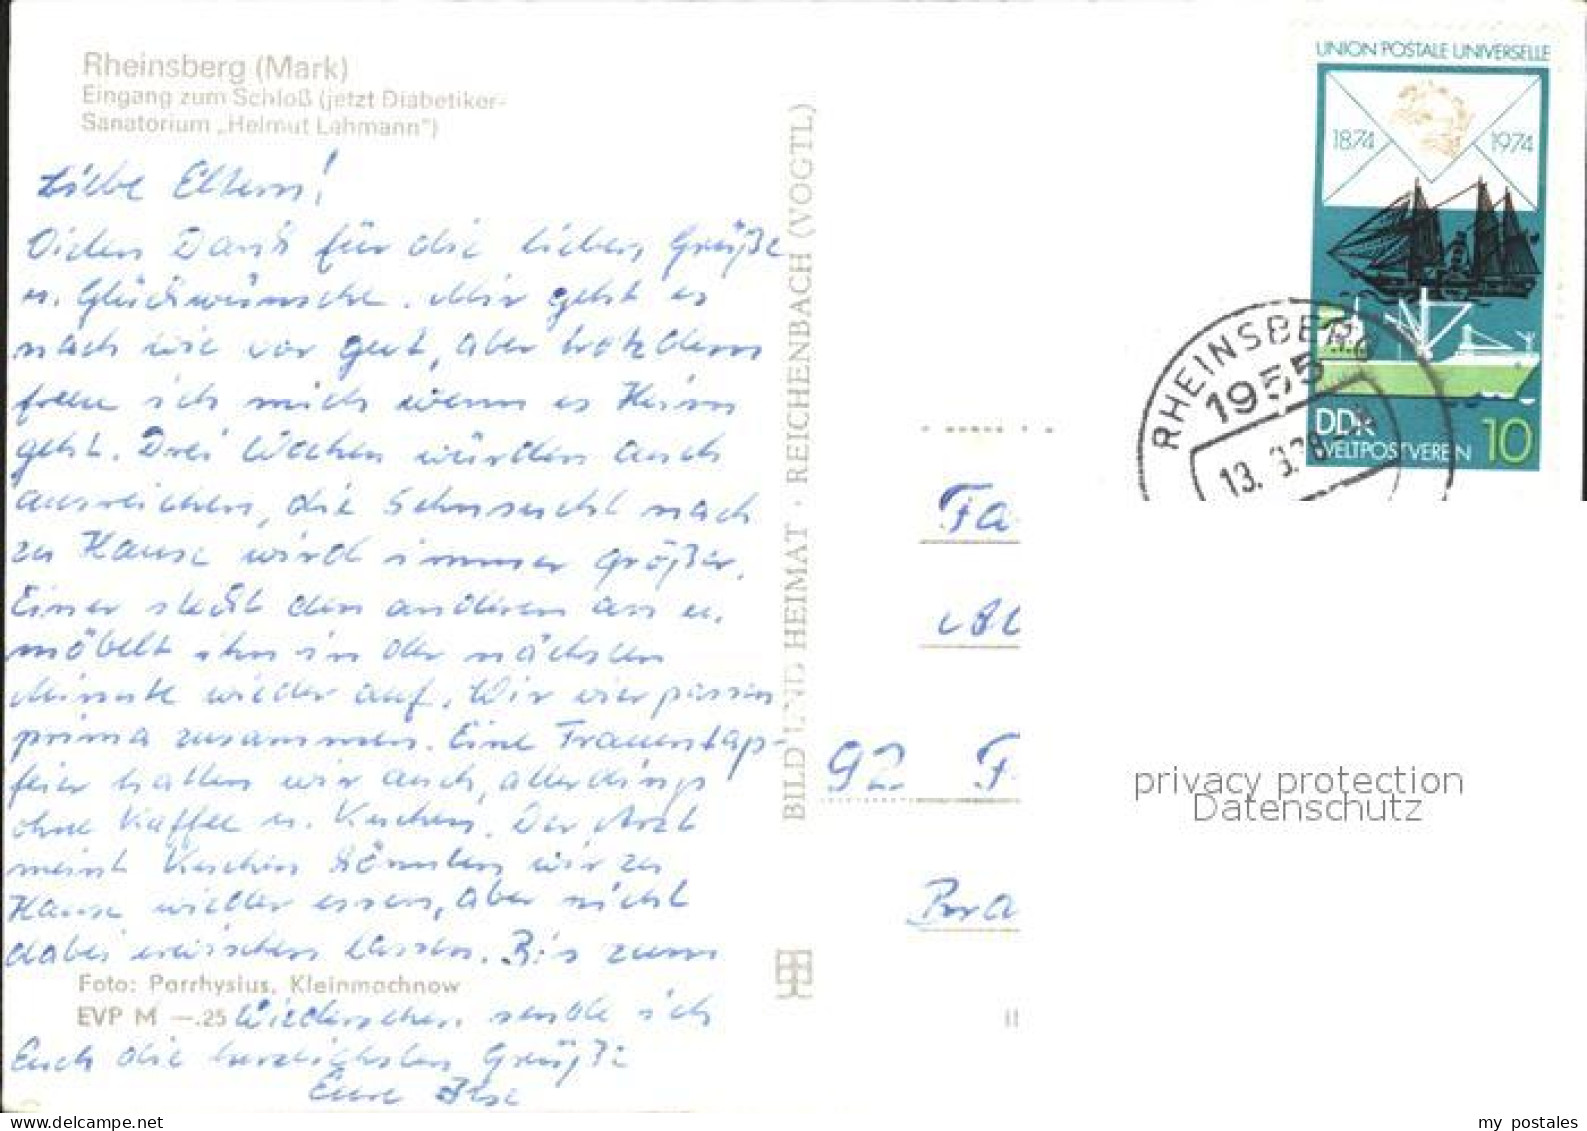 Rheinsberg (Mark)
Eingang zum Schloß (jetzt Diabetiker-
Sanatorium „Helmut Lehmann")
Liebe Eltern!
Vielen Dank für die lieben Grüße
u. Glückwünsche. Mir geht es
nach wie vor gut, aber trotzdem
freue ich mich wenn es Heim
geht. Drei Wochen würden auch
ausreichen, die Sehnsucht nach
zu Hause wird immer größer.
Einer steckt den anderen an u.
möbelt ihn in der nächsten
Minute wieder auf. Wir vier passen
prima zusammen. Eine Frauentag-
feier hatten wir auch, allerdings
ohne Kaffee u. Kuchen. Der Arzt
meint Kuchen könnten wir zu
Hause wieder essen, aber nicht
dabei erwischen lassen. Bis zum
Foto: Parrhysius, Kleinmachnow
EVP M —.25 Wiedersehen sende ich
Euch die herzlichsten Grüße
Eure Ilse
BILD UND HEIMAT · REICHENBACH (VOGTL)
UNION POSTALE UNIVERSELLE
1874 1974
DDR
WELTPOSTVEREIN 10
RHEINSBERG
1955
13. 3.
Fa
92 F
Bra
II
privacy protection
Datenschutz
my postales